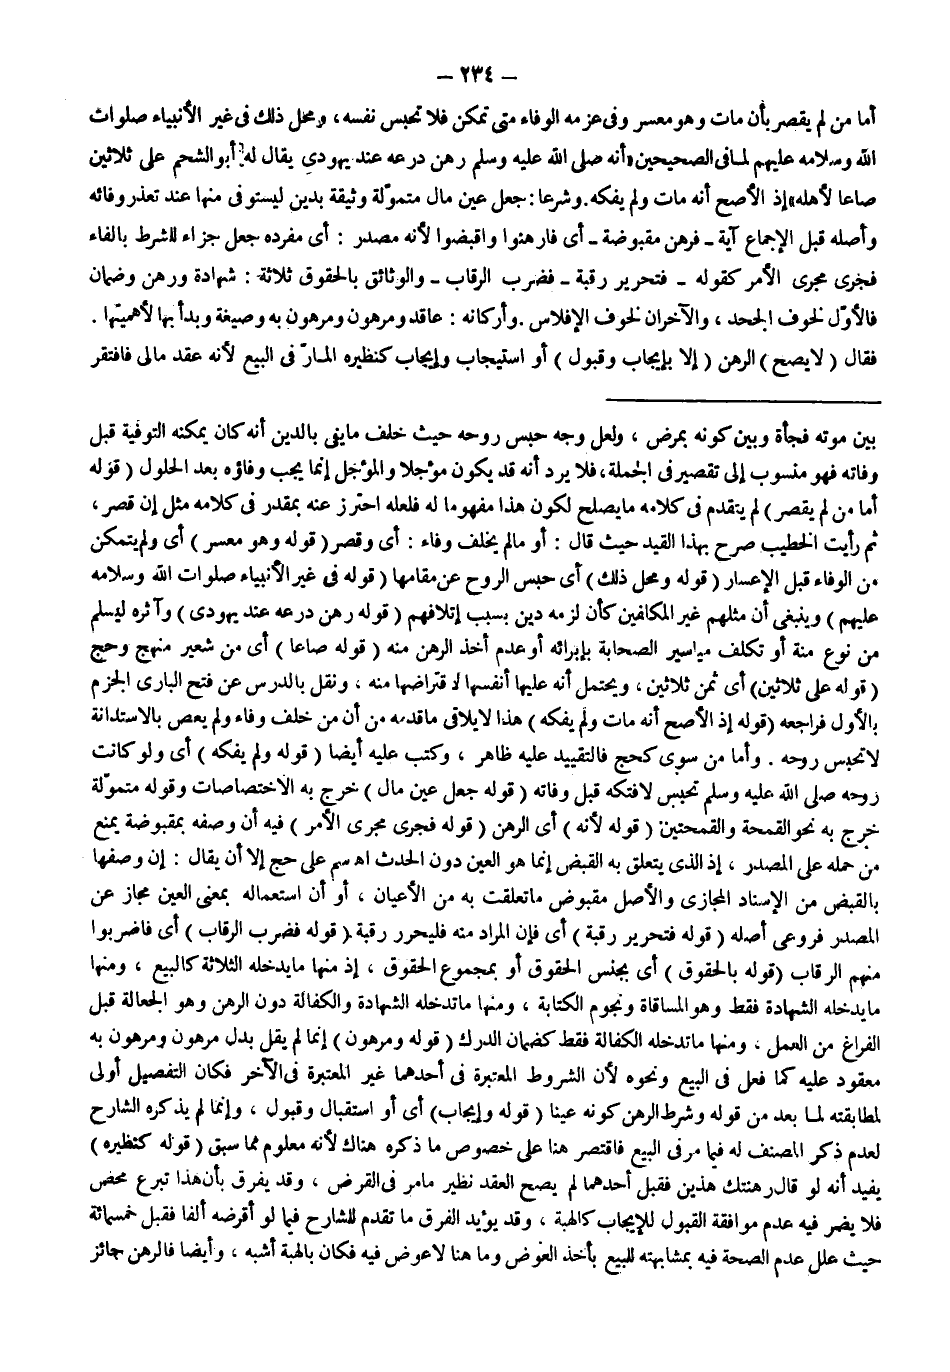 – ٢٣٤ –
أما من لم يقصر بأن مات وهو معسر وفى عزمه الوفاء متى تمكن فلا تحبس نفسه، ومحل ذلك فى غير الأنبياء صلوات
الله وسلامه عليهم لما فى الصحيحين «أنه صلى الله عليه وسلم رهن درعه عند يهودى يقال له أبو الشحم على ثلاثين
صاعا لأهله» إذ الأصح أنه مات ولم يفكه. وشرعا: جعل عين مال متموّلة وثيقة بدين ليستوفى منها عند تعذر وفائه
وأصله قبل الإجماع آية ــ فرهن مقبوضة ــ أى فارهنوا واقبضوا لأنه مصدر : أى مفرده جعل جزاء للشرط بالفاء
فجرى مجرى الأمر كقوله ــ فتحرير رقبة ــ فضرب الرقاب ــ والوثائق بالحقوق ثلاثة : شهادة ورهن وضمان
فالأوّل لخوف الجحد ، والآخران لخوف الإفلاس . وأركانه : عاقد ومرهون ومرهون به وصيغة وبدأ بها لأهميتها .
فقال ( لا يصح ) الرهن ( إلا بإيجاب وقبول ) أو استيجاب وإيجاب كنظيره المارّ فى البيع لأنه عقد مالى فافتقر
بين موته فجأة وبين كونه بمرض ، ولعل وجه حبس روحه حيث خلف مايفى بالدين أنه كان يمكنه التوفية قبل
وفاته فهو منسوب إلى تقصير فى الجملة، فلا يرد أنه قد يكون مؤجلا والمؤجل إنما يجب وفاؤه بعد الحلول ( قوله
أما من لم يقصر ) لم يتقدم فى كلامه مايصلح لكون هذا مفهوما له فلعله احترز عنه بمقدر فى كلامه مثل إن قصر ،
ثم رأيت الخطيب صرح بهذا القيد حيث قال : أو مالم يخلف وفاء : أى وقصر ( قوله وهو معسر ) أى ولم يتمكن
من الوفاء قبل الإعسار ( قوله ومحل ذلك ) أى حبس الروح عن مقامها ( قوله فى غير الأنبياء صلوات الله وسلامه
عليهم ) وينبغى أن مثلهم غير المكلفين كأن لزمه دين بسبب إتلافهم ( قوله رهن درعه عند يهودى ) وآثره ليسلم
من نوع منة أو تكلف مياسير الصحابة بإبرائه أو عدم أخذ الرهن منه ( قوله صاعا ) أى من شعير منهج وحج
( قوله على ثلاثين ) أى ثمن ثلاثين ، ويحتمل أنه عليها أنفسها لاقتراضها منه ، ونقل بالدرس عن فتح البارى الجزم
بالأول فراجعه ( قوله إذ الأصح أنه مات ولم يفكه ) هذا لايلاقى ماقدمه من أن من خلف وفاء ولم يعص بالاستدانة
لاتحبس روحه . وأما من سوى كحج فالتقييد عليه ظاهر ، وكتب عليه أيضا ( قوله ولم يفكه ) أى ولو كانت
روحه صلى الله عليه وسلم تحبس لافتكه قبل وفاته ( قوله جعل عين مال ) خرج به الاختصاصات وقوله متموّلة
خرج به نحو القمحة والقمحتين ( قوله لأنه ) أى الرهن ( قوله فجرى مجرى الأمر ) فيه أن وصفه بمقبوضة يمنع
من حمله على المصدر ، إذ الذى يتعلق به القبض إنما هو العين دون الحدث اه سم على حج إلا أن يقال : إن وصفها
بالقبض من الإسناد المجازى والأصل مقبوض ماتعلقت به من الأعيان ، أو أن استعماله بمعنى العين مجاز عن
المصدر فروعى أصله ( قوله فتحرير رقبة ) أى فإن المراد منه فليحرر رقبة ( قوله فضرب الرقاب ) أى فاضربوا
منهم الرقاب ( قوله بالحقوق ) أى بجنس الحقوق أو بمجموع الحقوق ، إذ منها مايدخله الثلاثة كالبيع ، ومنها
مايدخله الشهادة فقط وهو المساقاة ونجوم الكتابة ، ومنها ماتدخله الشهادة والكفالة دون الرهن وهو الجعالة قبل
الفراغ من العمل ، ومنها ماتدخله الكفالة فقط كضمان الدرك ( قوله ومرهون ) إنما لم يقل بدل مرهون ومرهون به
معقود عليه كما فعل فى البيع ونحوه لأن الشروط المعتبرة فى أحدهما غير المعتبرة فى الآخر فكان التفصيل أولى
لمطابقته لما بعد من قوله وشرط الرهن كونه عينا ( قوله وإيجاب ) أى أو استقبال وقبول ، وإنما لم يذكره الشارح
لعدم ذكر المصنف له فيما مر فى البيع فاقتصر هنا على خصوص ما ذكره هناك لأنه معلوم مما سبق ( قوله كنظيره )
يفيد أنه لو قال رهنتك هذين فقبل أحدهما لم يصح العقد نظير مامر فى القرض ، وقد يفرق بأن هذا تبرع محض
فلا يضر فيه عدم موافقة القبول للإيجاب كالهبة ، وقد يؤيد الفرق ما تقدم للشارح فيما لو أقرضه ألفا فقبل خمسمائة
حيث علل عدم الصحة فيه بمشابهته للبيع بأخذ العوض وما هنا لاعوض فيه فكان بالهبة أشبه ، وأيضا فالرهن جائز